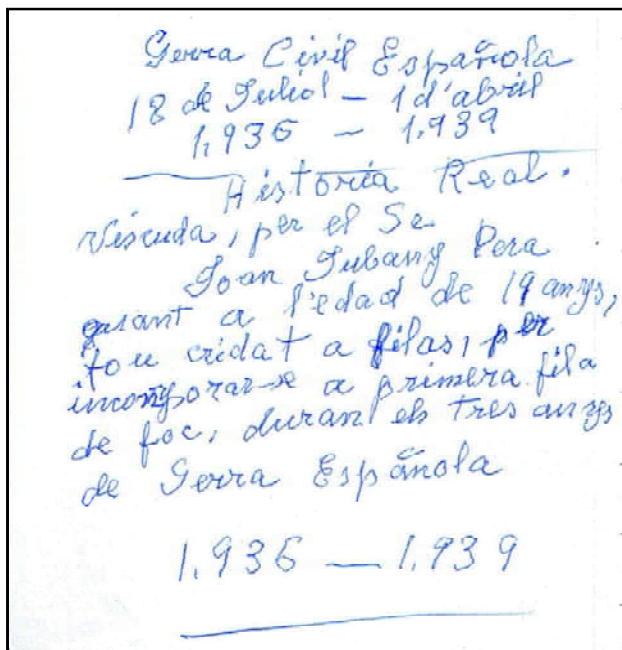 Gerra Civil Española
18 de Juliol - 1 d'abril
1.936 - 1.939
Historia Real.
Viscuda, per el Se
Joan Jubany Pera
quant a l'edad de 19 anys,
fou cridat a filas, per
incorporar-se a primera fila
de foc, duran els tres anys
de Gerra Española
1.936 — 1.939